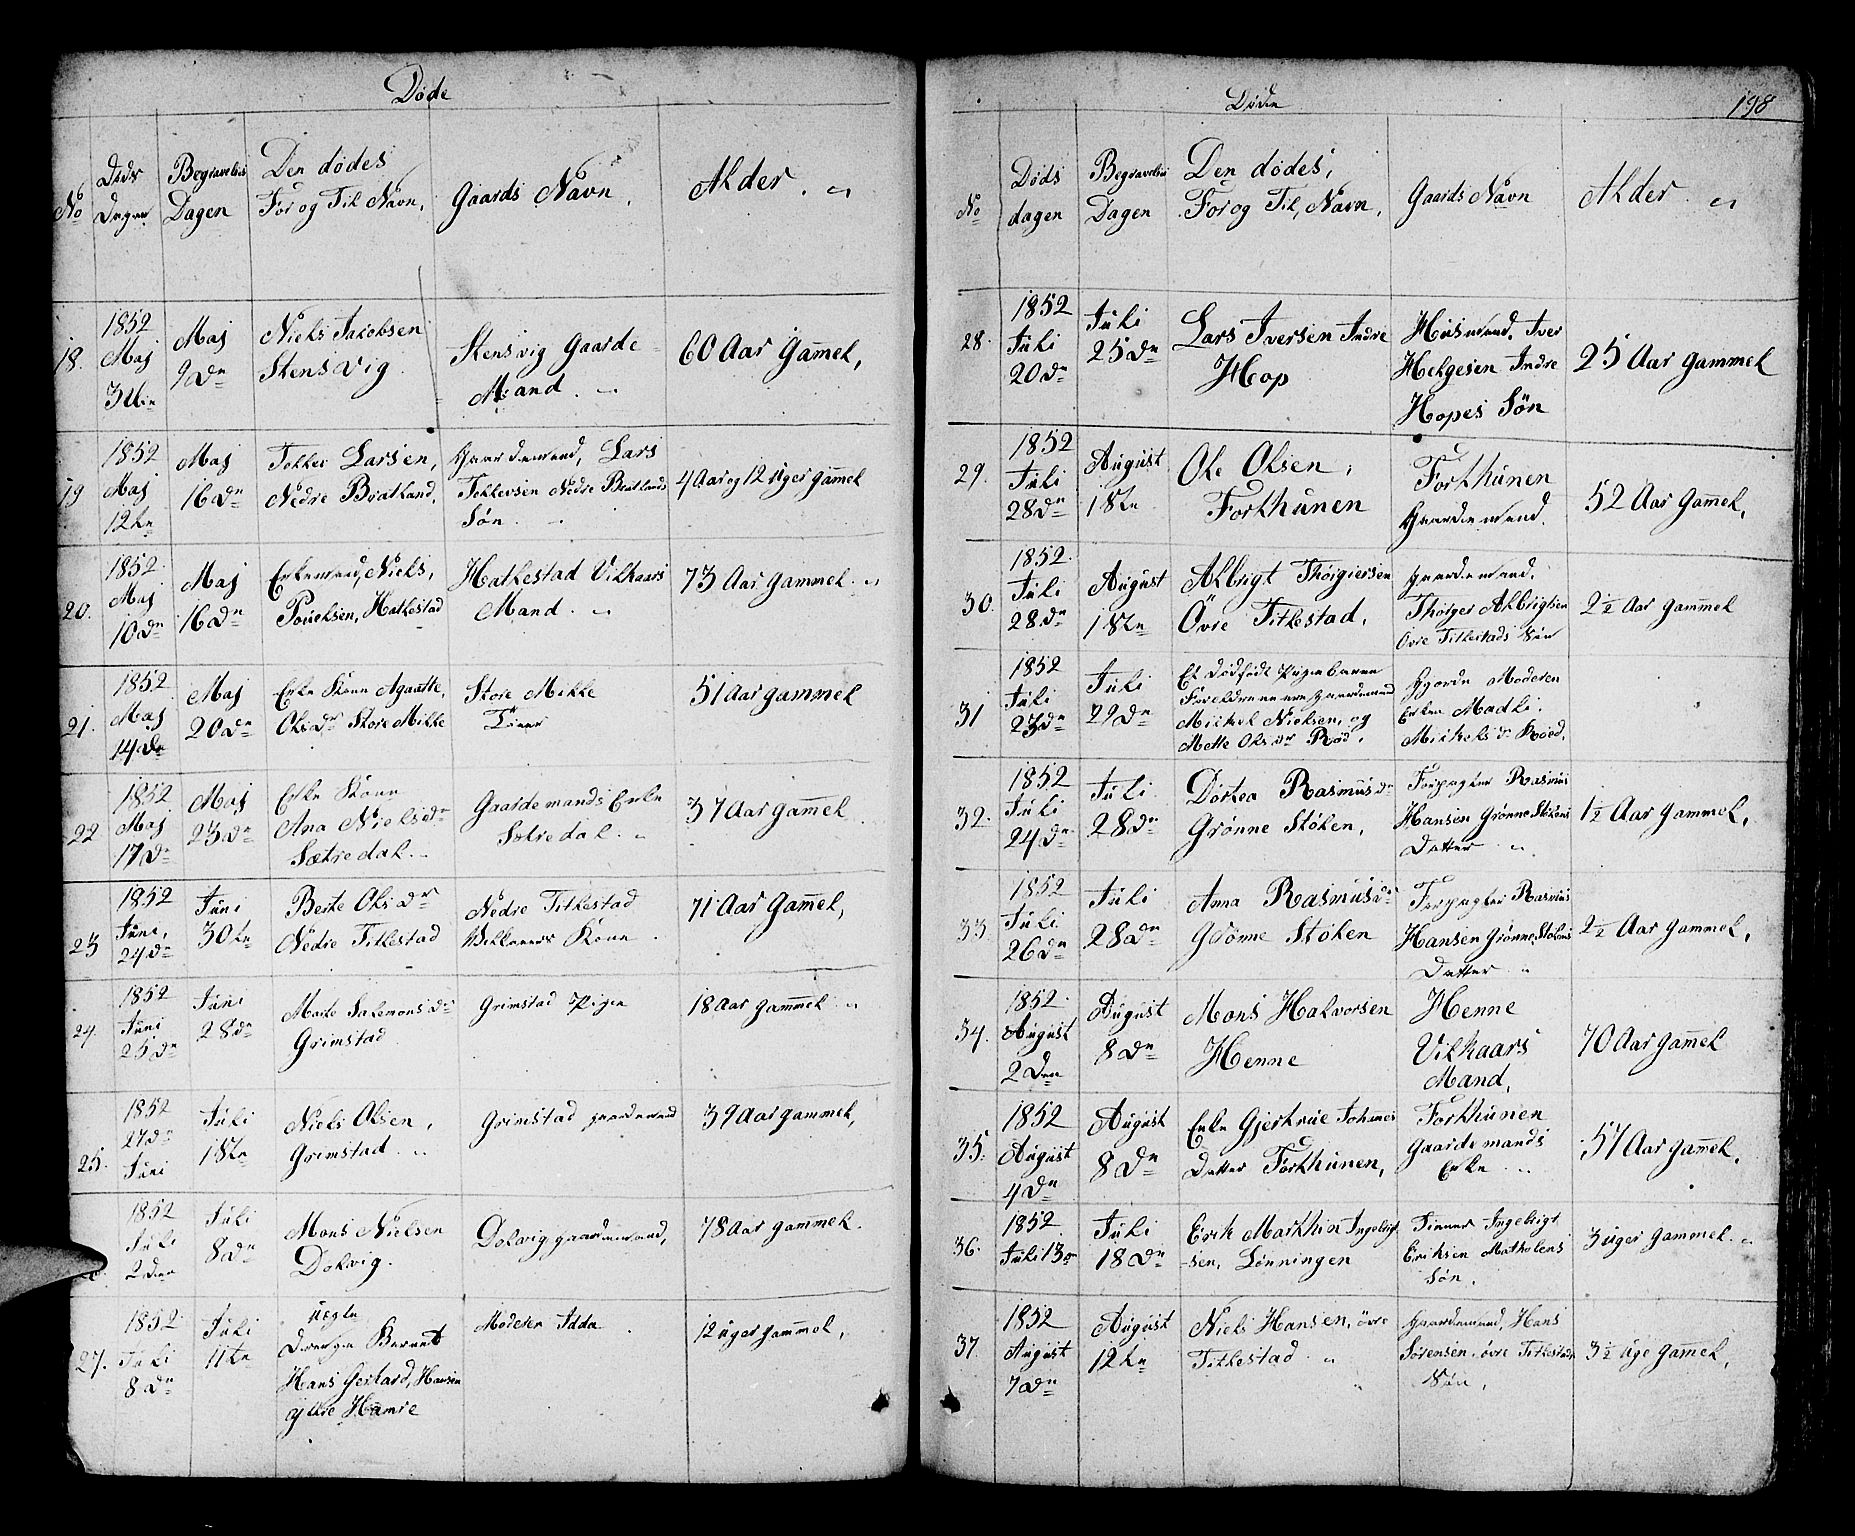 Døde
No
Døds
Dagen
Begravelses
Dagen
Den dødes
For og Til Navn,
Gaards Navn,
Alder. „
18.
1852
Maj
3die
Maj
9de
Niels Jakobsen
Stensvig
Stensvig Gaarde
Mand. „
60 Aar Gam̅el,
19
1852
Maj
12te
Maj
16de
Larsen,
Nedre Bratland,
Gaardemand, Lars
Nedre Bratlands
Søn. „
4 Aar og 12 Uger gam̅el
20.
1852
Maj
10de
Maj
16de
Enkemand, Niels,
Poulsen, Hatlestad
Hatlestad Vilkaars
Mand. „
73 Aar gammel. „
21.
1852
Maj
14de
Maj
20de
Enke Kone Agaatte,
Olsdr Store Milde
Store Milde
51 Aar gammel
22
1852
Maj
17de
Maj
23de
Enke Kone
Ana Nielsdr
Sætredal. „
Gaardemands Enke
Sætredal. „
37 Aar gam̅el
23
1852
Juni,
24de
Juni
30te
Berte Olsdr
Nedre Titlestad
Nedre Titlestad
Vilkaars Kone.
71 Aar Gam̅el,
24.
1852
Juni
25de
Juni
28de
Marte Salemonsdr
Grimstad
Grimstad Pigen
18 Aar gammel „
25.
1852
27de
Juni
Juli
1ste
Niels Olsen,
Grimstad. „
Grimstad gaardemand
39 Aar gammel,
1852
Juli
2den
Juli
8de
Mons Nielsen
Dolvig.
Dolvig, gaardemand,
78 Aar gammel.
27.
1852
Juli
8de
Juli
11te
Uegte
Drenge Barnet
Hans Gerhard, Hansen
Ydre Hamre
Moderen Idda
12 uger gammel,
Døde
198
No
Døds
dagen
Begravelses
Dagen
Den dødes,
For og Til, Navn,
Gaards Navn
Alder. „
28.
1852
Juli
20de
Juli
25de
Lars Iversen Indre
Hop
Husmand, Iver
Helgesen Indre
Hopes Søn
25 Aar gammel
29.
1852
Juli
28de
August
1ste
Ole Olsen,
Forthunen
Forthunen
Gaardemand.
52 Aar Gam̅el,
30.
1852.
Juli
28de
August
1ste
Albrigt Thorgiersen
Øvre Titlestad,
Gaardemand.
Thorger Albrigtsen
Øvre Titlestads Søn
2½ Aar gammel
31
1852
Juli
23de
Juli
29de
Et dødfødt Pigebarn
Forældrene ere gaardemand
Mickel Nielsen, og
Mette Olsdr Rød,
Gjorde Moderen
Enken Madli.
Mickelsdr Røed,
32.
1852
Juli
24de
Juli
28de
Dortea Rasmusdr
Grønne Støken,
Forpagter Rasmus
Hansen Grønne Støkens
Datter „
1½ Aar gammel,
33
1852
Juli
26de
Juli
28de
Anna Rasmusdr
Grønne Støken
Forpagter Rasmus
Hansen Grønne Støkens
Datter „
2½ Aar gammel,
34.
1852.
August
2den
August
8de
Mons Halvorsen
Henne
Henne
Vilkaars
Mand,
70 Aar gam̅el
35.
1852
August
4de
August
8de
Enke Gjertrue Johanes
Datter Forthunen,
Forthunen
Gaardemands
Enke „
57 Aar gam̅el,
36.
1852
Juli 13de
Juli
18de
Erik Marthin Ingebrigt
-sen, Lønningen
Ingebrigt
Eriksen Matholens
Søn.
3 uger gammel. „
37.
1852
August
7de
August
12te
Niels Hansen, øvre
Titlestad „
Gaardemand, Hans
Sørensen, øvre Titlestads
Søn,
3½ uge gam̅el,